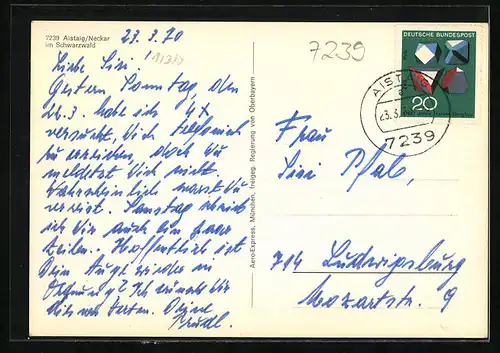 7239 Aistaig/Neckar
im Schwarzwald
23.3.70
Liebe Sisi!
Gestern Sonntag, den
22.3. habe ich 4x
versucht, Dich telefonisch
zu erreichen, doch Du
meldetest Dich nicht.
Wahrscheinlich warst Du
verreist. Samstag schrieb
ich Dir auch ein paar
Zeilen. Hoffentlich ist
Dein Auge wieder in
Ordnung? Ich wünsche Dir
Deine
Trudl.
Aero-Express, München, freigeg. Regierung von Oberbayern
7239
DEUTSCHE BUNDESPOST
20
AISTAIG
23.3.
7239
Frau
Sisi Pfab,
714 Ludwigsburg
Mozartstr. 9